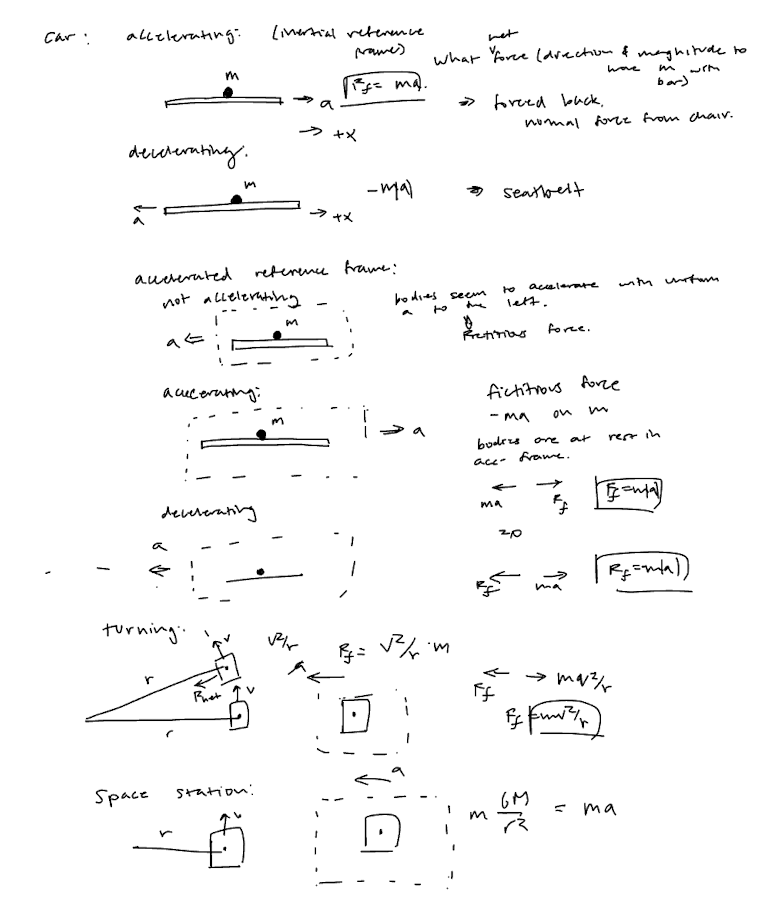 car: accelerating: (inertial reference frame)
What net force (direction & magnitude to move m with bar)
m
a
F_f = ma.
⇒ forced back.
normal force from chair.
→ +x
decelerating.
m
-m|a|
⇒ seatbelt
a
→ +x
accelerated reference frame:
not accelerating
bodies seem to accelerate with uniform
a to the left.
m
a ⇐
fictitious force.
accelerating:
fictitious force
m
⇒ a
-ma on m
bodies are at rest in
acc- frame.
ma
F_f
F_f = m|a|
decelerating
a
F_f
ma
F_f = m|a|
turning:
v
v²/r
F_f = v²/r · m
r
a
F_net
v
F_f
→ mv²/r
r
F_f = mv²/r
a
Space station:
v
r
m GM/r² = ma